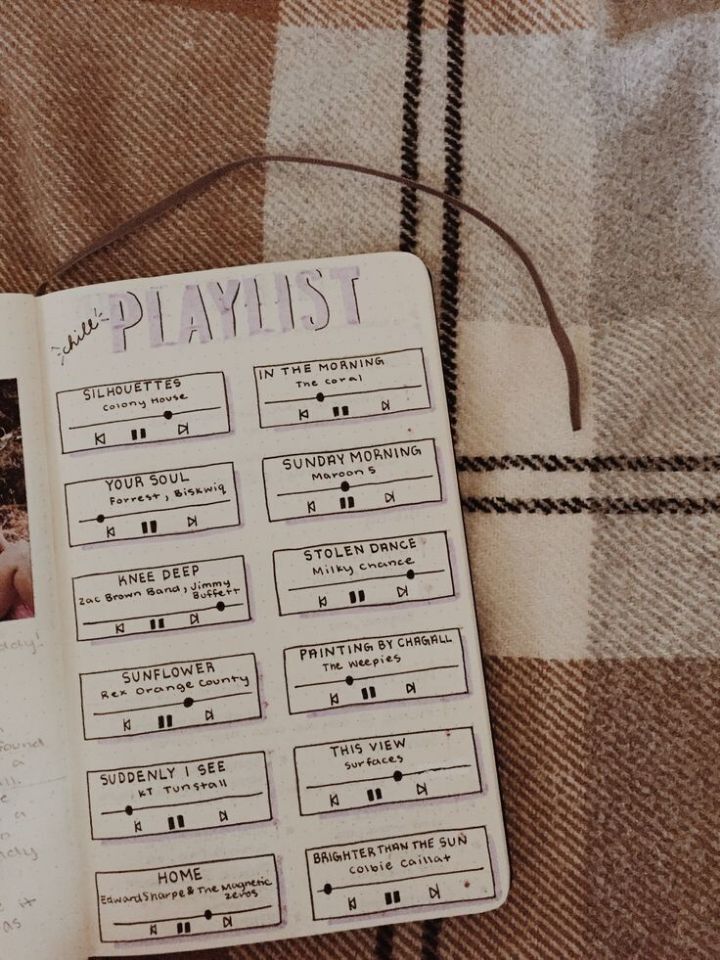 chill
PLAYLIST
SILHOUETTES
Colony House
YOUR SOUL
Forrest, Biskwiq
KNEE DEEP
Zac Brown Band, Jimmy
Buffett
SUNFLOWER
Rex Orange County
SUDDENLY I SEE
KT Tunstall
HOME
Edward Sharpe & The Magnetic
Zeros
IN THE MORNING
The Coral
SUNDAY MORNING
Maroon 5
STOLEN DANCE
Milky Chance
PAINTING BY CHAGALL
The Weepies
THIS VIEW
Surfaces
BRIGHTER THAN THE SUN
Colbie Caillat